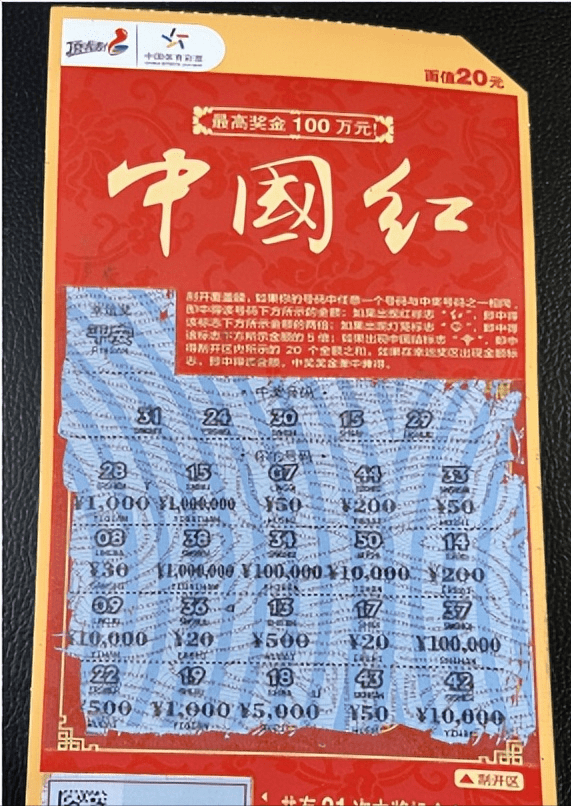 顶呱刮 中国体育彩票
面值20元
最高奖金 100 万元!
中國红
刮开覆盖膜，如果你的号码中任意一个号码与中奖号码之一相同，
即中得该号码下方所示的金额；如果出现红标志“红”，即中得
该标志下方所示金额的两倍；如果出现灯笼标志“ ”，即中得
该标志下方所示金额的5倍；如果出现中国结标志“ ”，即中
得刮开区内所示的 20 个金额之和。如果在幸运奖区出现金额标
志，即中得该金额。中奖奖金兼中兼得。
幸运奖
平安
中奖号码
31 24 30 15 29
你的号码
28 15 07 44 33
¥1,000 ¥1,000,000 ¥50 ¥200 ¥50
08 38 34 50 14
¥30 ¥1,000,000 ¥100,000 ¥10,000 ¥200
09 36 13 17 37
¥10,000 ¥20 ¥500 ¥20 ¥100,000
22 19 18 43 42
¥500 ¥1,000 ¥5,000 ¥50 ¥10,000
▲刮开区
共有 21 次中奖机会